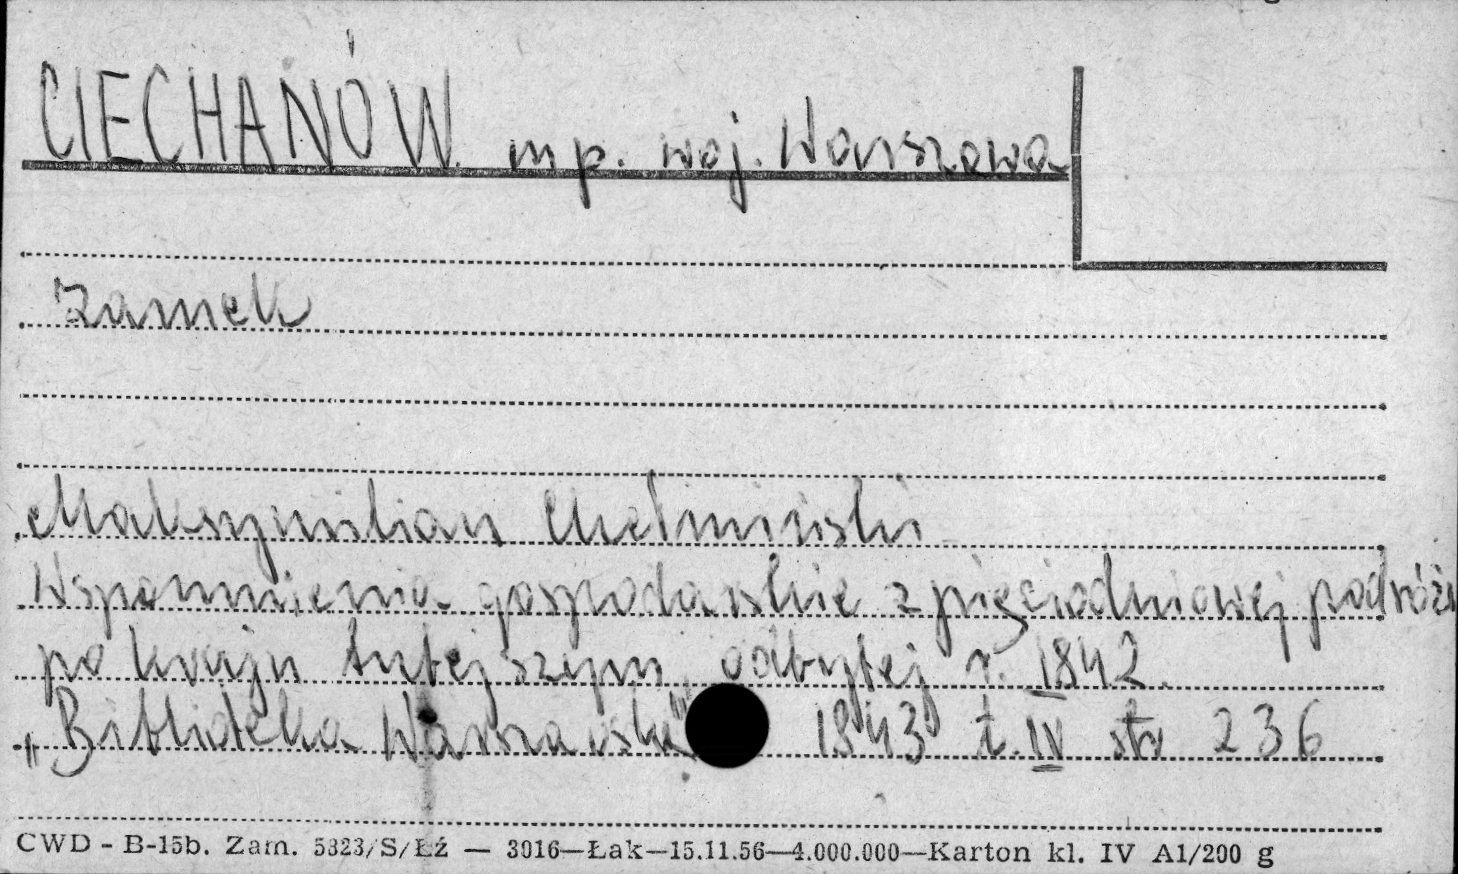 CIECHANÓW. mp. woj. Warszawa
Zamek
Maksymilian Chełmiński
Wspomnienia gospodarskie z pięciodniowej podróży
po kraju tutejszym, odbytej r. 1842.
„Biblioteka Warszawska" 1843 t. IV str 236
CWD - B-15b. Zam. 5323/S/Łź — 3016—Łak—15.11.56—4.000.000—Karton kl. IV A1/200 g